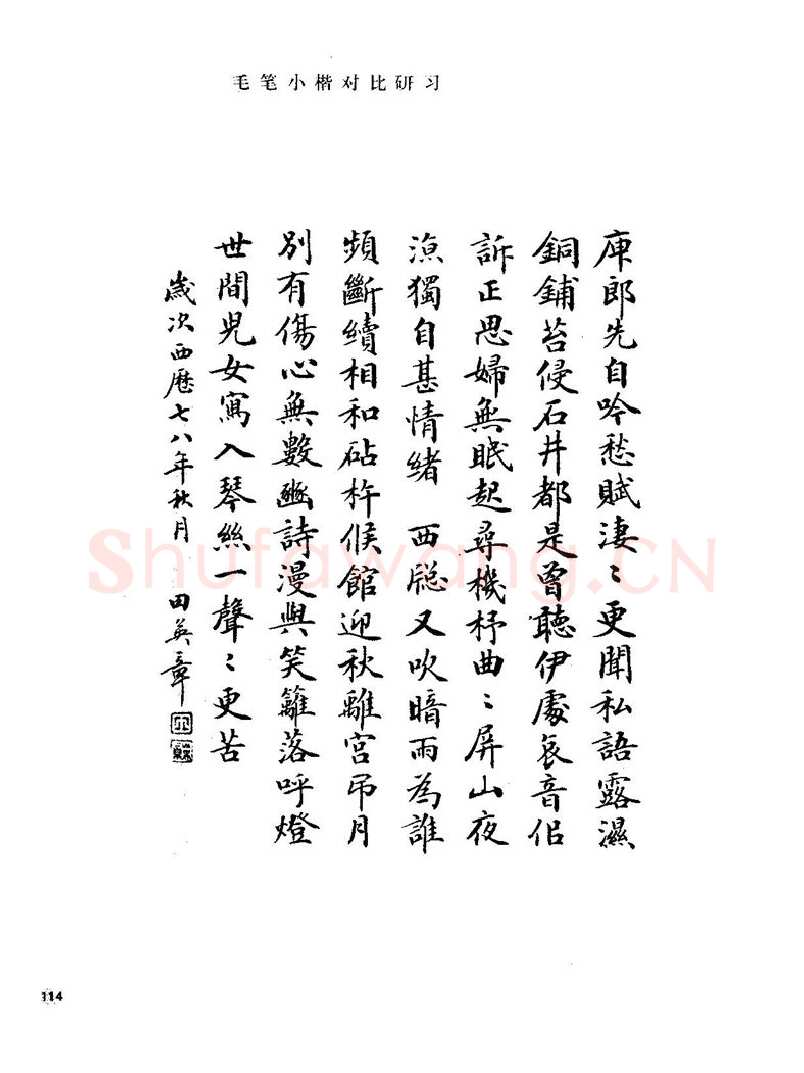 毛笔小楷对比研习
庾郎先自吟愁賦淒〻更聞私語露濕
銅鋪苔侵石井都是曾聽伊處哀音似
訴正思婦無眠起尋機杼曲〻屏山夜
涼獨自甚情緒 西牕又吹暗雨為誰
頻斷續相和砧杵候館迎秋離宮吊月
別有傷心無數豳詩漫與笑籬落呼燈
世間兒女寫入琴絲一聲〻更苦
歲次西歷七八年秋月 田英章
Shufawang.CN
114